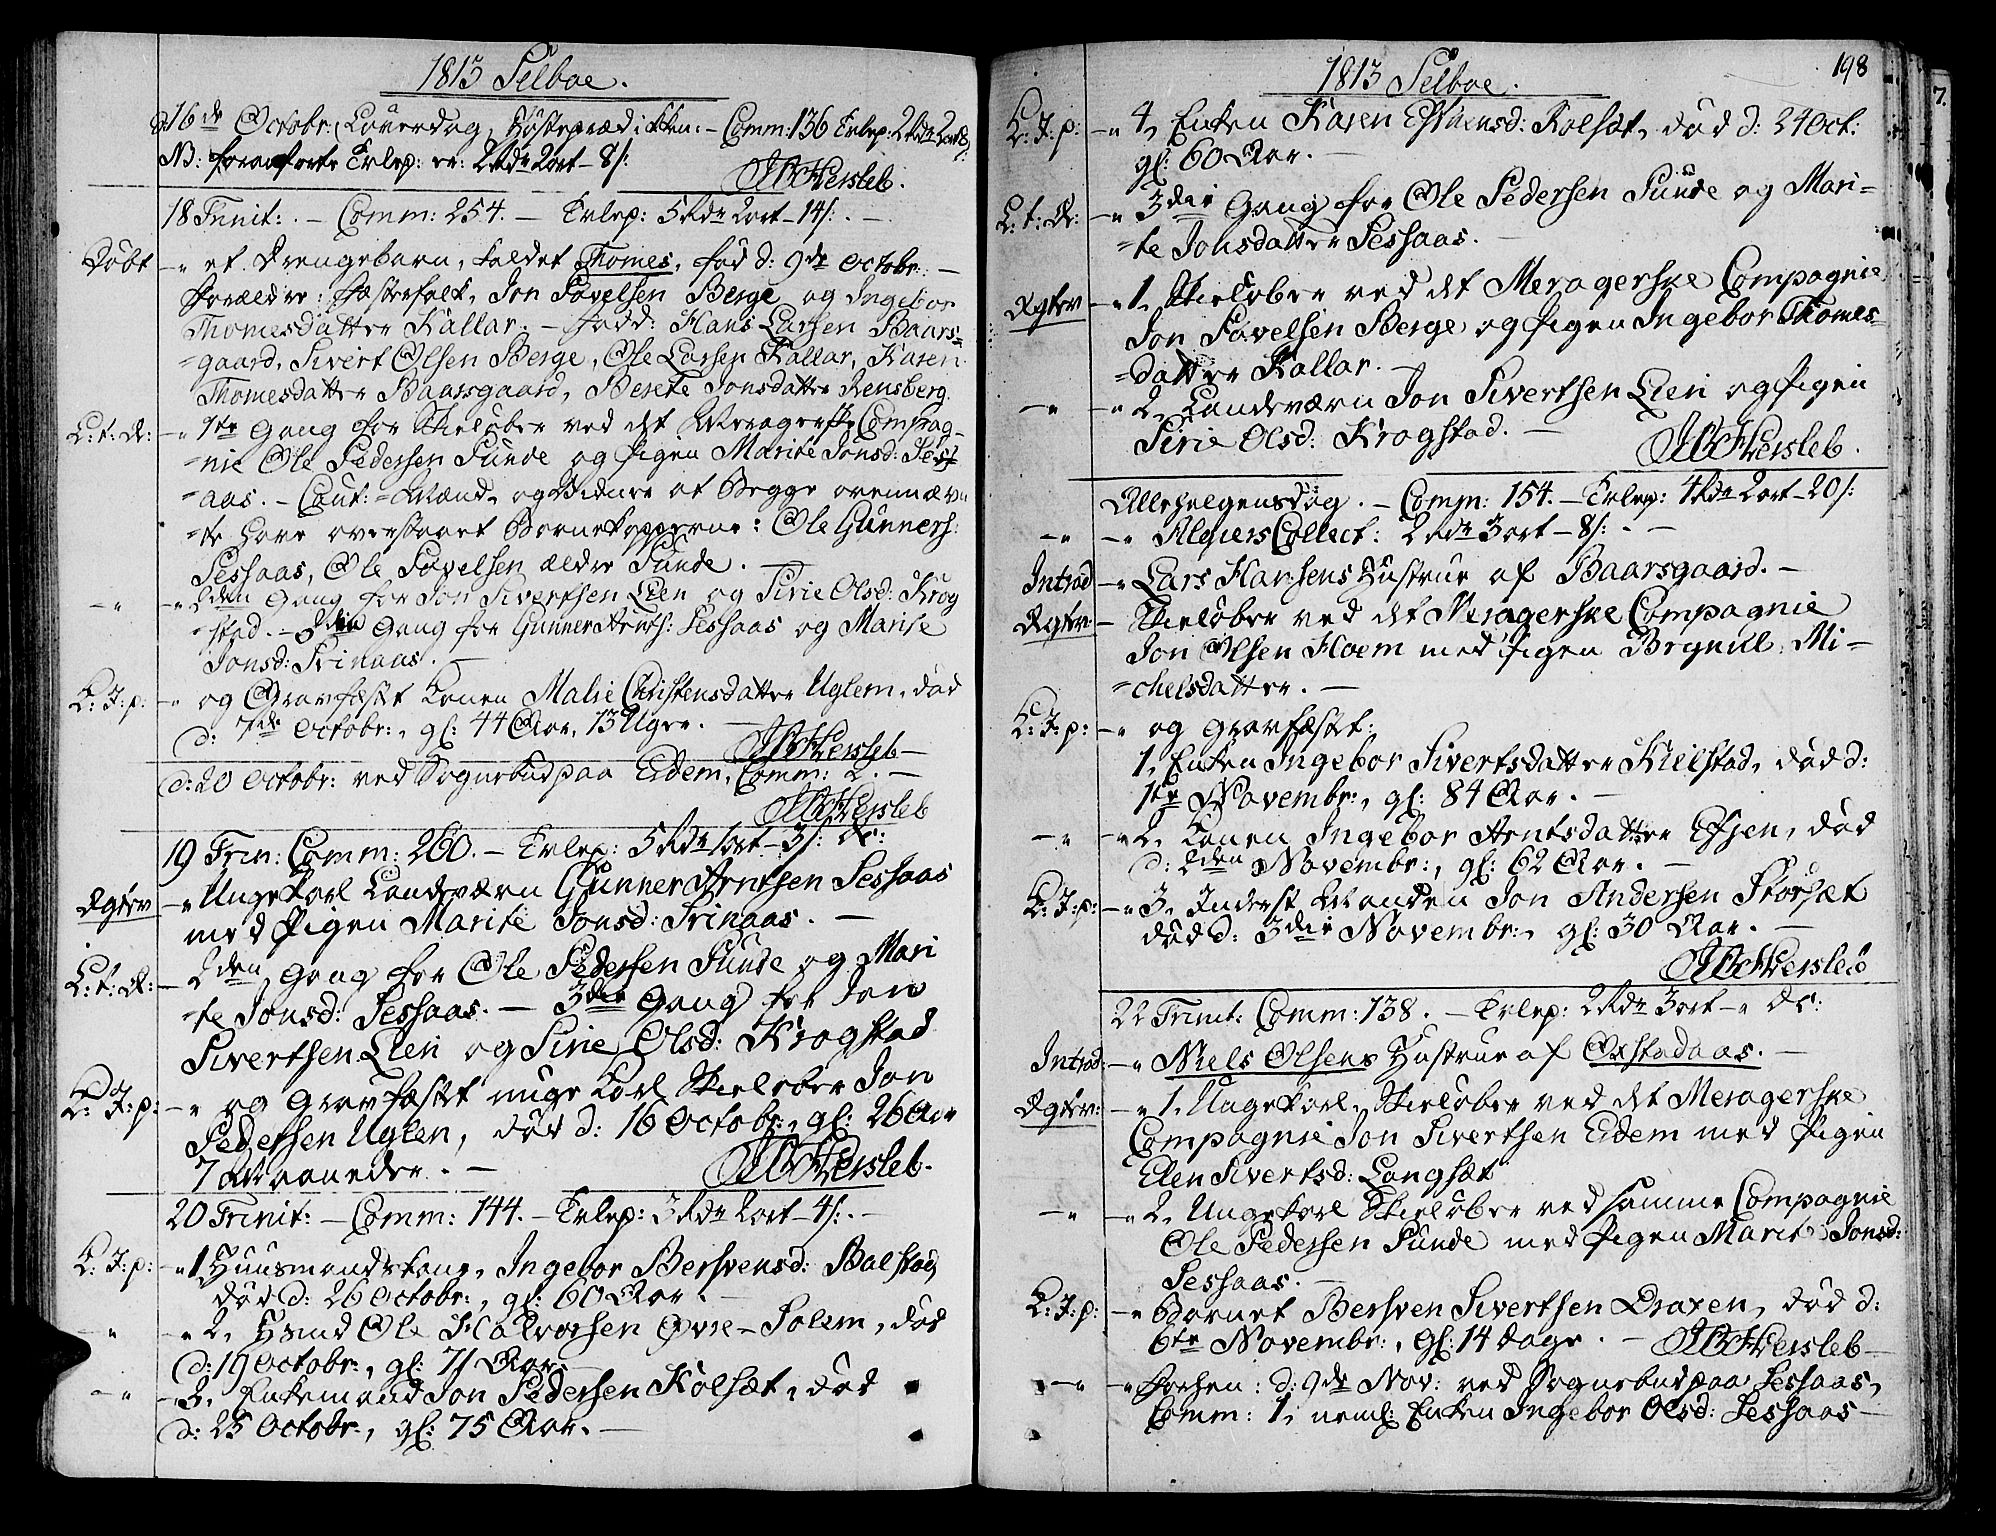 1813 Selboe.
16de Octobr: Löverdag, Comm: 136 Erlep: 2 Rdr 2 ort 8 s:
NB: foranförte Erlep: er: 2 Rdr 2 ort - 8 s:
JBHersleb.
18 Trinit: . - Comm: 254. - Erlep: 5 Rdr 2 ort - 14 s: . -
Döbt - " et Drengebarn, kaldet Thomes, föd d: 9de Octobr: -
Forældre: Fæstefolk, Jon Povelsen Berge og Ingebor
Thomesdatter Kallar. - Fadd: Hans Larsen Baars-
=gaard, Sivert Olsen Berge, Ole Larsen Kallar, Karen
Thomesdatter Baarsgaard, Berete Jonsdatter Rensberg.
L: t: Æ: - " 1te Gang for Skielöber ved det Meragerske Compag-
=nie Ole Pedersen Sunde og Pigen Marite Jonsd: Sess
=aas. - Caut: Mænd, og Vidner at Begge ovennævn
=te have overstaaet Börnekopperne: Ole Gunners:
Sessaas, Ole Povelsen ældre Sunde. -
- " - - " 2den Gang for Jon Sivertsen Lien og Sirie Olsd: Krog
=stad. - 3die Gang for Gunner Arnts: Sessaas og Marite
Jonsd: Trinaas. -
L: J: p: - " og Gravfæstet Konen Malie Christensdatter Uglem, död
d: 7de Octobr:, gl: 44 Aar, 13 Uger. -
JBHersleb -
d: 20 Octobr: ved Sognebud paa Edem, Comm: 2. -
JBHersleb
19 Trin: Comm: 260. - Erlep: 5 Rdr 1 ort - 3 s: &c:
Ægtev - " Ungekarl Landværn Gunner Arntsen Sessaas
med Pigen Marite Jonsd: Trinaas. -
L: t: Æ: - 2den Gang for Ole Pedersen Sunde og Mari
=te Jonsd: Sessaas. - 3die Gang for Jon
Sivertsen Lien og Sirie Olsd: Krogstad
L: J: p: - " og Gravfæstet unge Karl Skielöber Jon
Pedersen Uglen, död d: 16 Octobr:, gl: 26 Aar
7 Maaneder. -
JBHersleb.
20 Trinit: - Comm: 144. - Erlep: 3 Rdr 2 ort - 4 s: . -
L: J: p: - " 1, Huusmandskone, Ingebor Bersvensd: Balstad,
död d: 26 Octobr:, gl: 60 Aar. -
- " - - " 2, Ole Halvorsen Övre-Solem, död
d: 19 Octobr:, gl: 71 Aar. -
- " - 3, Enkemand Jon Pedersen Kolsæt, död
d: 25 Octobr:, gl: 75 Aar. -
198
1813 Selboe.
L: J: p: - " 4, Enken Karen Estensd: Kolsæt, död d: 24 Oct:
gl: 60 Aar. -
L: t: Æ: - " 3die Gang for Ole Pedersen Sunde og Mari=
=te Jonsdatter Sessaas. -
Ægtev - " 1, Skielöber ved det Meragerske Compagnie
Jon Povelsen Berge og Pigen Ingebor Thomes=
=datter Kallar. -
- " - - " 2, Landeværn Jon Sivertsen Lien og Pigen
Sirie Olsd: Krogstad. -
JBHersleb.
Allehelgensdag. - Comm: 154. - Erlep: 4 Rdr 2 ort - 20 s:
- " - - " Algiers Collect: 2 Rdr 3 ort - 8 s: . -
Introd - " Lars Hansens Hustrue af Baarsgaard. -
Ægtev - Skielöber ved det Meragerske Compagnie
Jon Olsen Hoem med Pigen Brynill Mi=
=chelsdatter. -
L: J: p: - " og Gravfæstet:
1, Enken Ingebor Sivertsdatter Kielstad, död d:
1te Novembr:, gl: 84 Aar. -
- " - - " 2, Konen Ingebor Arntsdatter Efjen, död
d: 2den Novembr:, gl: 62 Aar. -
L: J: p: - " 3, Inderst Manden Jon Andersen Storsæt
död d: 3die Novembr:, gl: 30 Aar. -
JBHersleb
22 Trinit: Comm: 138. - Erlep: 2 Rdr 3 ort - " &c:
Introd: - " Niels Olsens Hustrue af Oxstadaas. -
Ægtev: - " 1, Ungekarl, Skielöber ved det Meragerske
Compagnie Jon Sivertsen Edem med Pigen
Elen Sivertsd: Langsæt
- " - - " 2, Ungekarl Skielöber ved samme Compagnie
Ole Pedersen Sunde med Pigen Marit Jonsd:
Sessaas. -
L: J: p: - " Barnet Bersven Sivertsen Draxen, död d:
6te Novembr:, gl: 14 Dage. - JBHersleb -
- " - - " d: 9de Nov: ved Sognebud paa Sessaas,
Comm: 1, neml: Enken Ingebor Olsd: Sessaas -